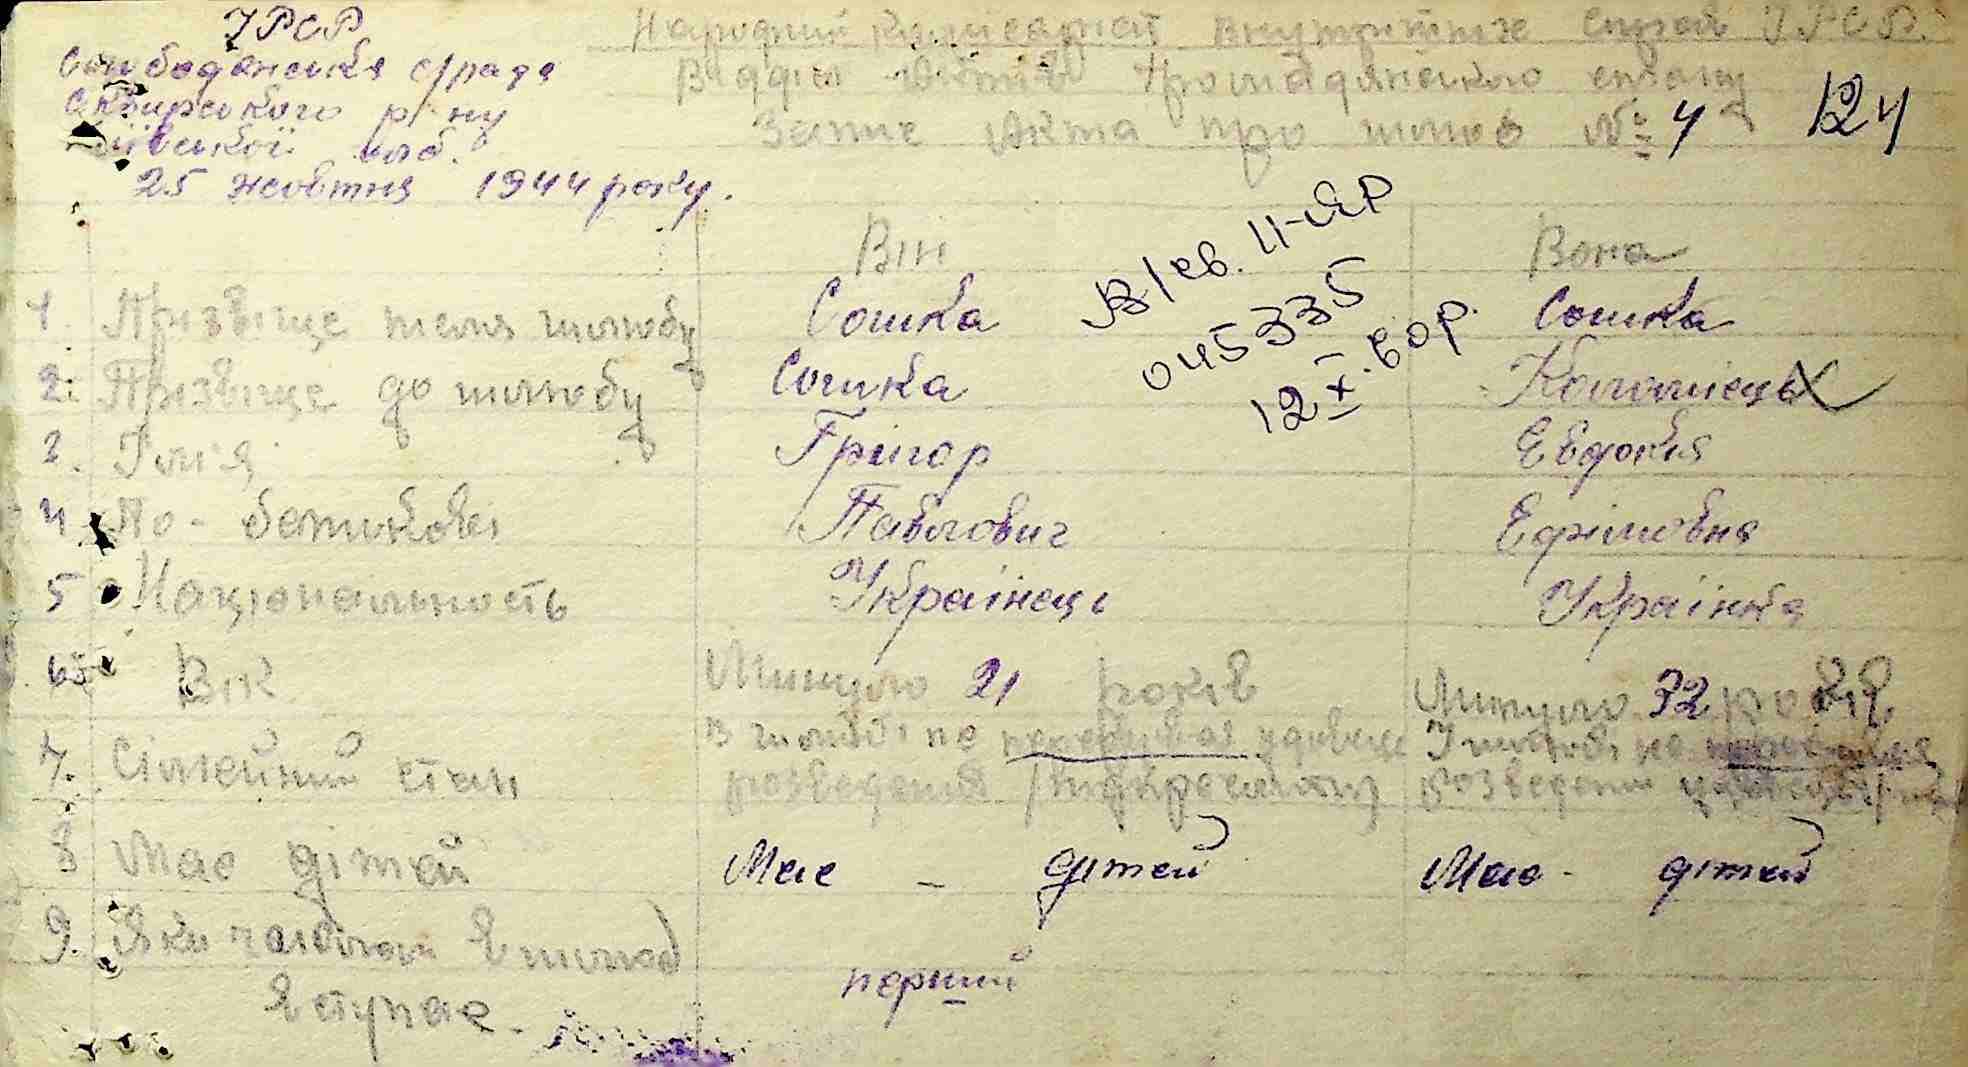 УРСР
Слободянська с/рада
Сквирського р-ну
Київської обл.
25 жовтня 1944 року.
Народний Комисаріат внутрішніх справ УРСР.
Відділ Актів громадянського стану
Запис Акта про шлюб № 4
124
Він
Вона
В/св. II-ЯР
045335
12 X. 60 р.
1. Прізвіще після шлюбу Сошка Сошка
2. Прізвіще до шлюбу Сошка Коломієць
3. Ім'я Грігор Евдокія
4 По-батькові Павлович Ефімовна
5 Національность Украінець Украінка
6 Вік Минуло 21 років Минуло 32 років
7. Сімейний стан В шлюбі не перебував удовець У шлюбі не
розведений /підкреслити/ розведена
8 Має дітей Має - дітей Має - дітей
9. Яки часового в шлюб
вступає. перший